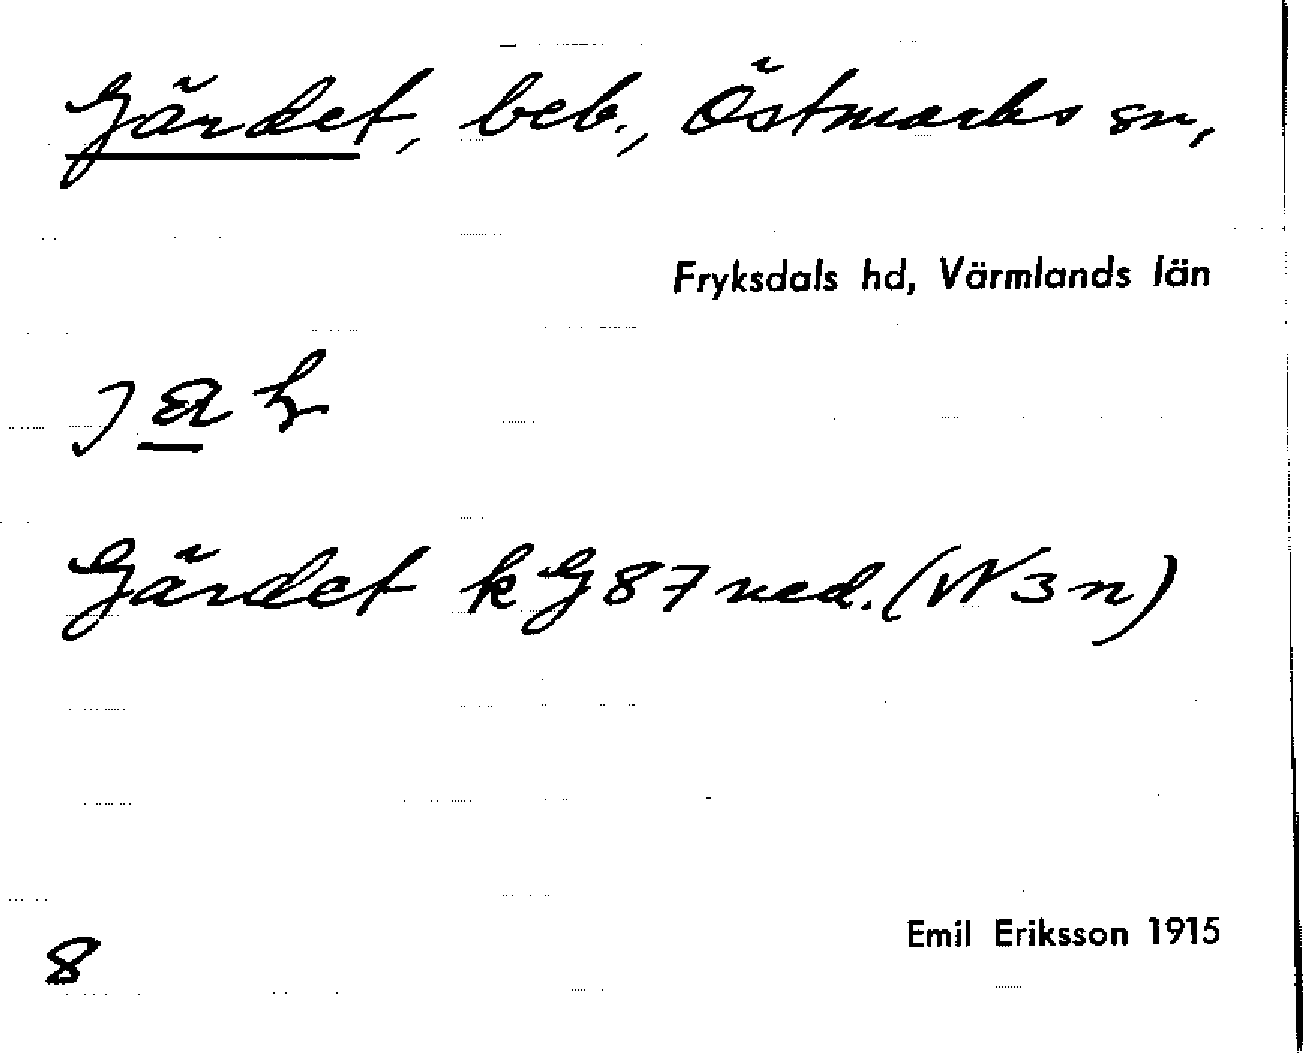 Gärdet, beb., Östmarks sn,
Fryksdals hd, Värmlands län
Gärdet kG87 ned. (W3n)
Emil Eriksson 1915
8